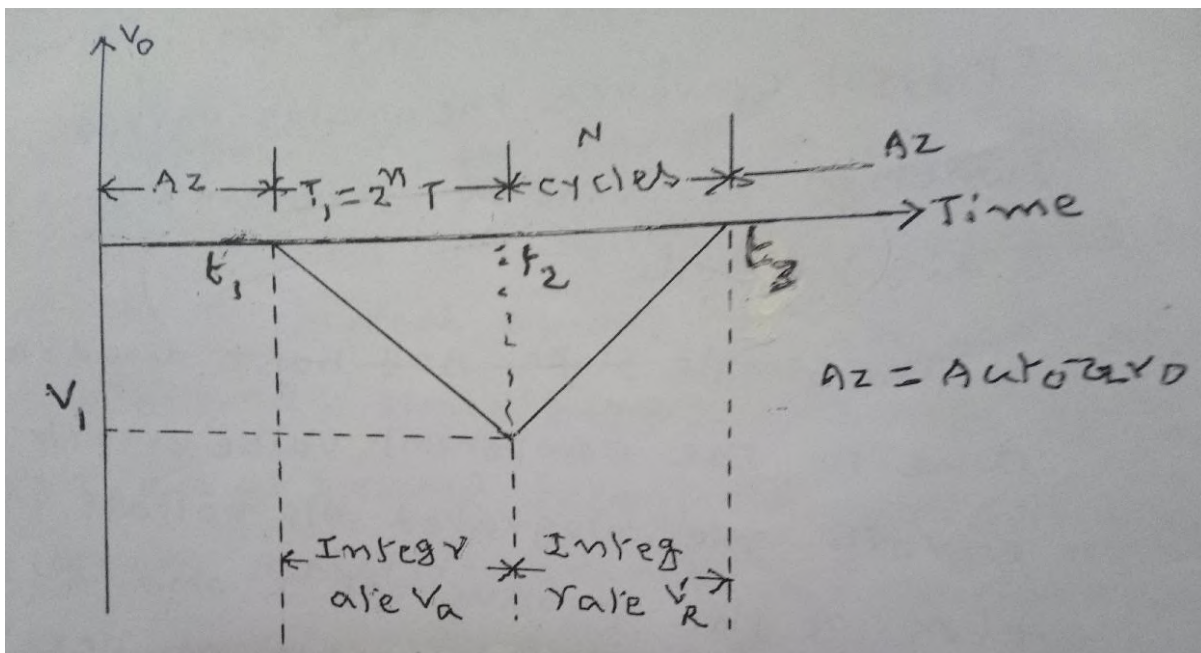 V₀
N
AZ T₁ = 2ⁿ T cycles AZ
Time
t₁ t₂ t₃
V₁
AZ = Autozero
Integr Integ
ate Va rate VR